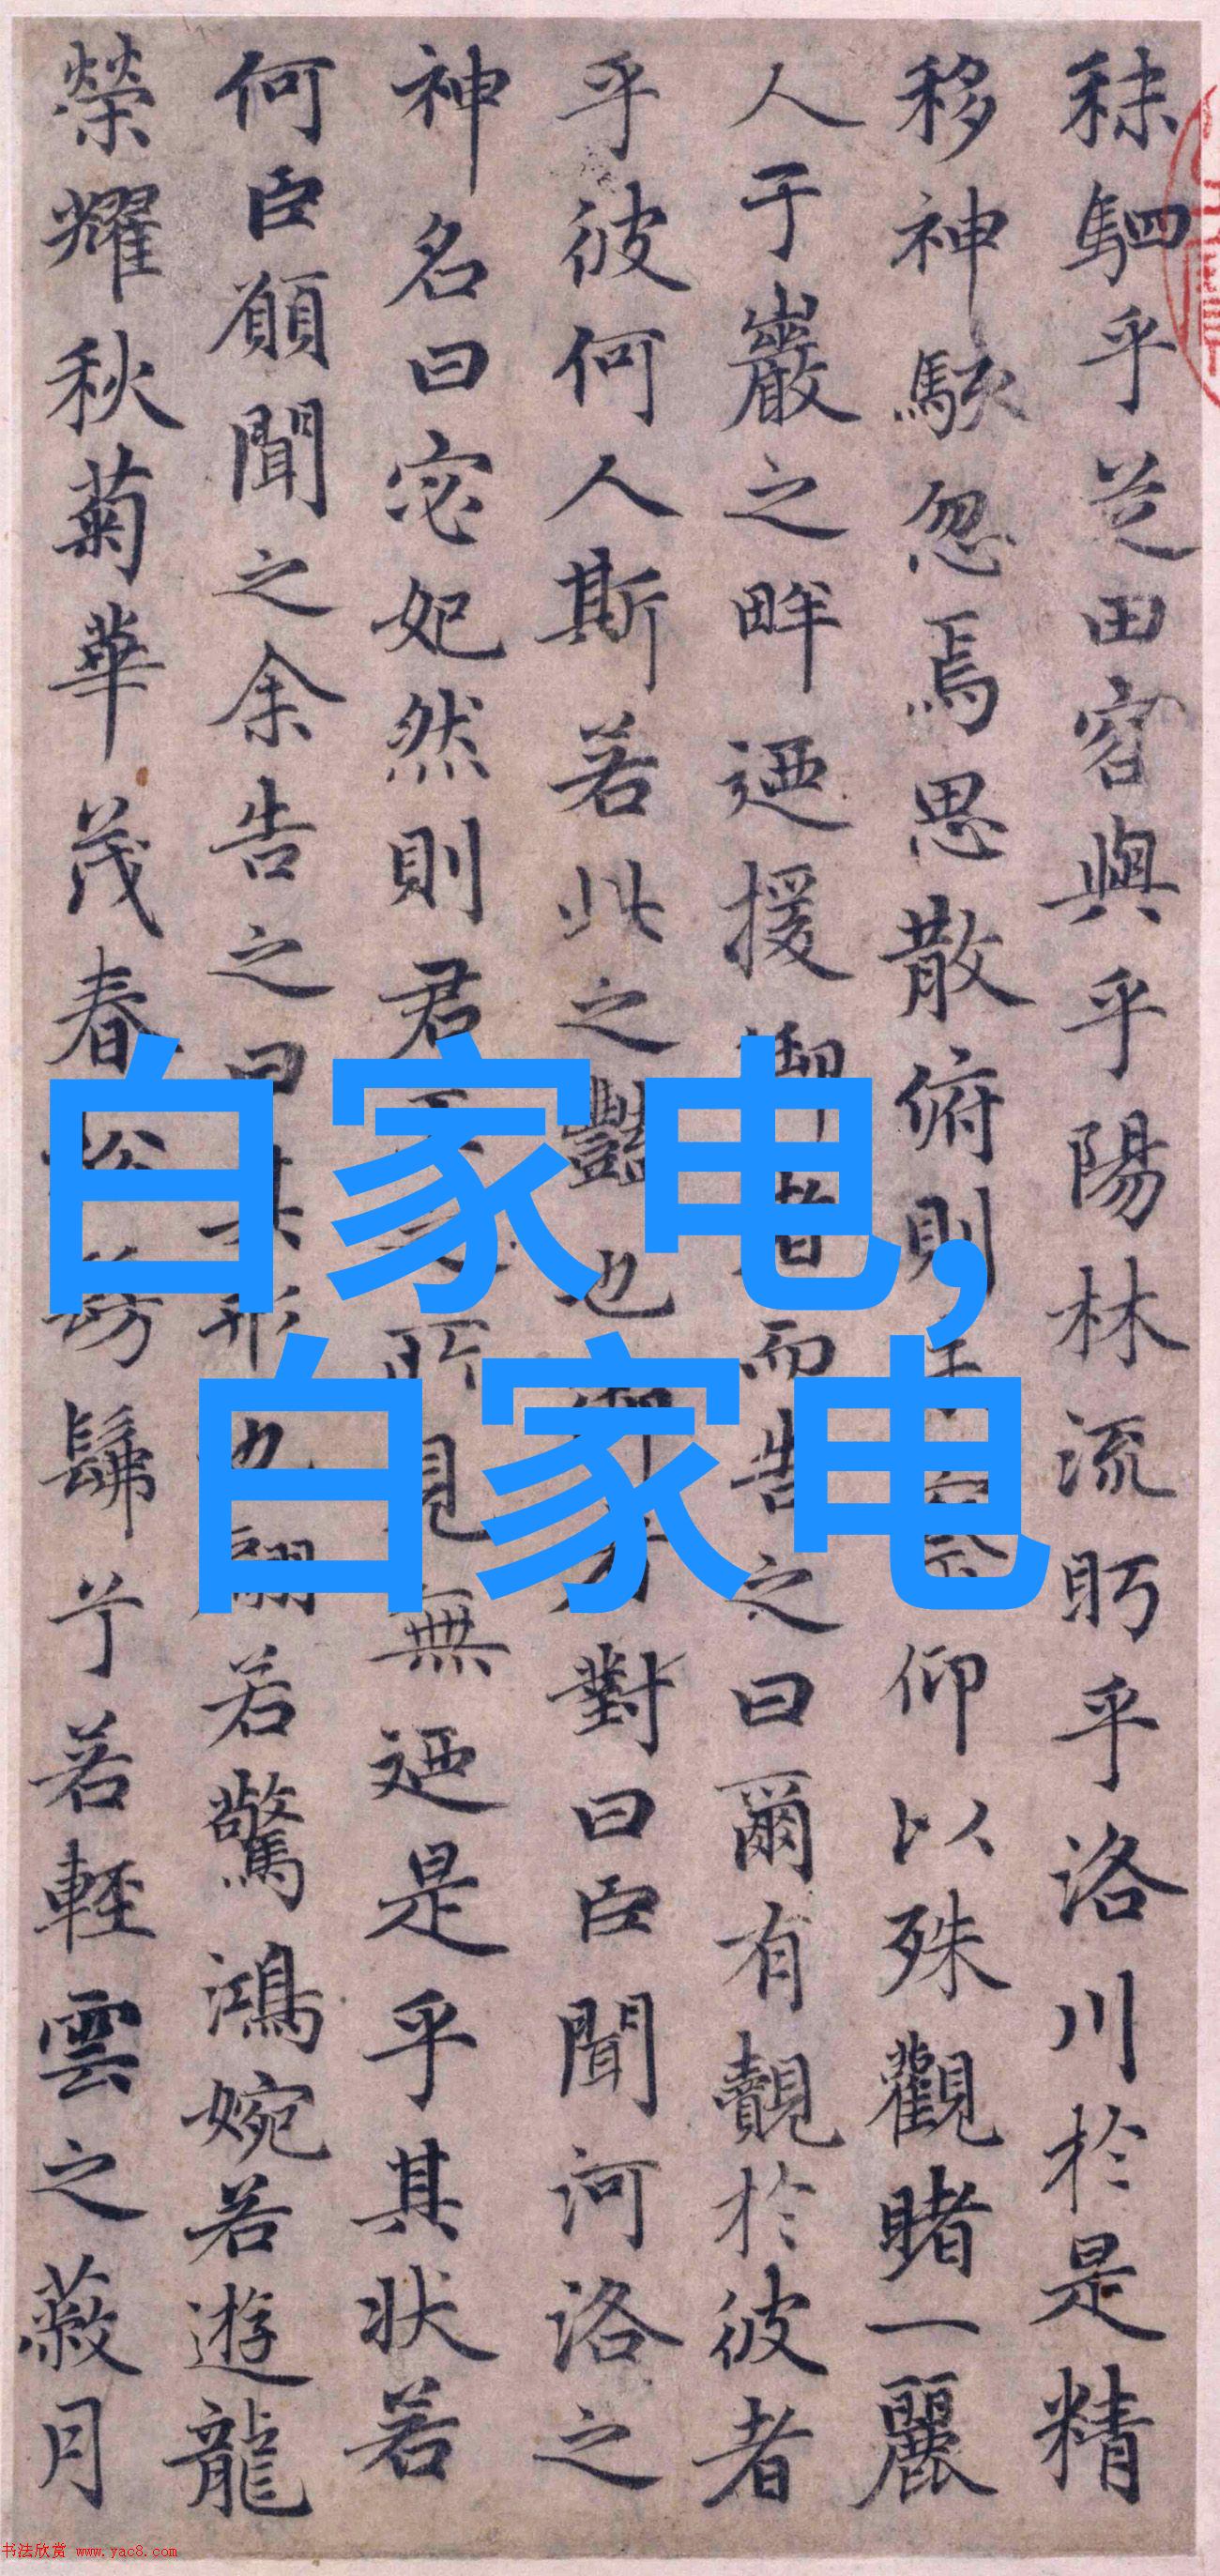 秣駟乎芝田容與乎陽林流眄乎洛川於是精
移神駭忽焉思散俯則未察仰以殊觀睹一麗
人于巖之畔迺援御者而告之曰爾有覿於彼者
乎彼何人斯若此之豔也御者對曰臣聞河洛之
神名曰宓妃然則君王之所見無迺是乎其狀若
何臣願聞之余告之曰其形也翩若驚鴻婉若遊龍
榮耀秋菊華茂春松髣髴兮若輕雲之蔽月
白家电,
白家电
书法欣赏 www.yac8.com